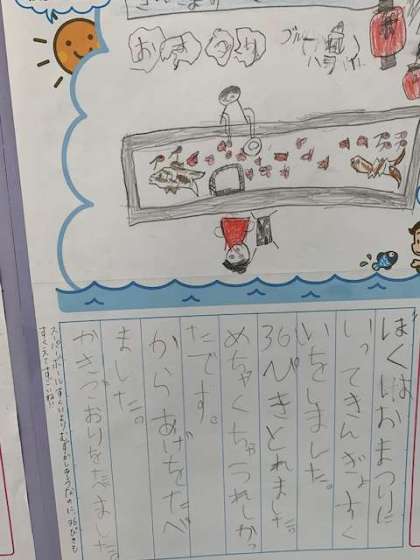 おまつり
ブルー
ハワイ
ぼくはおまつりに
いってきんぎょすく
いをしました。
36ぴきとれました。
めちゃくちゃうれしかっ
たです。
からあげをたべ
ました。
かきごおりをたべました。